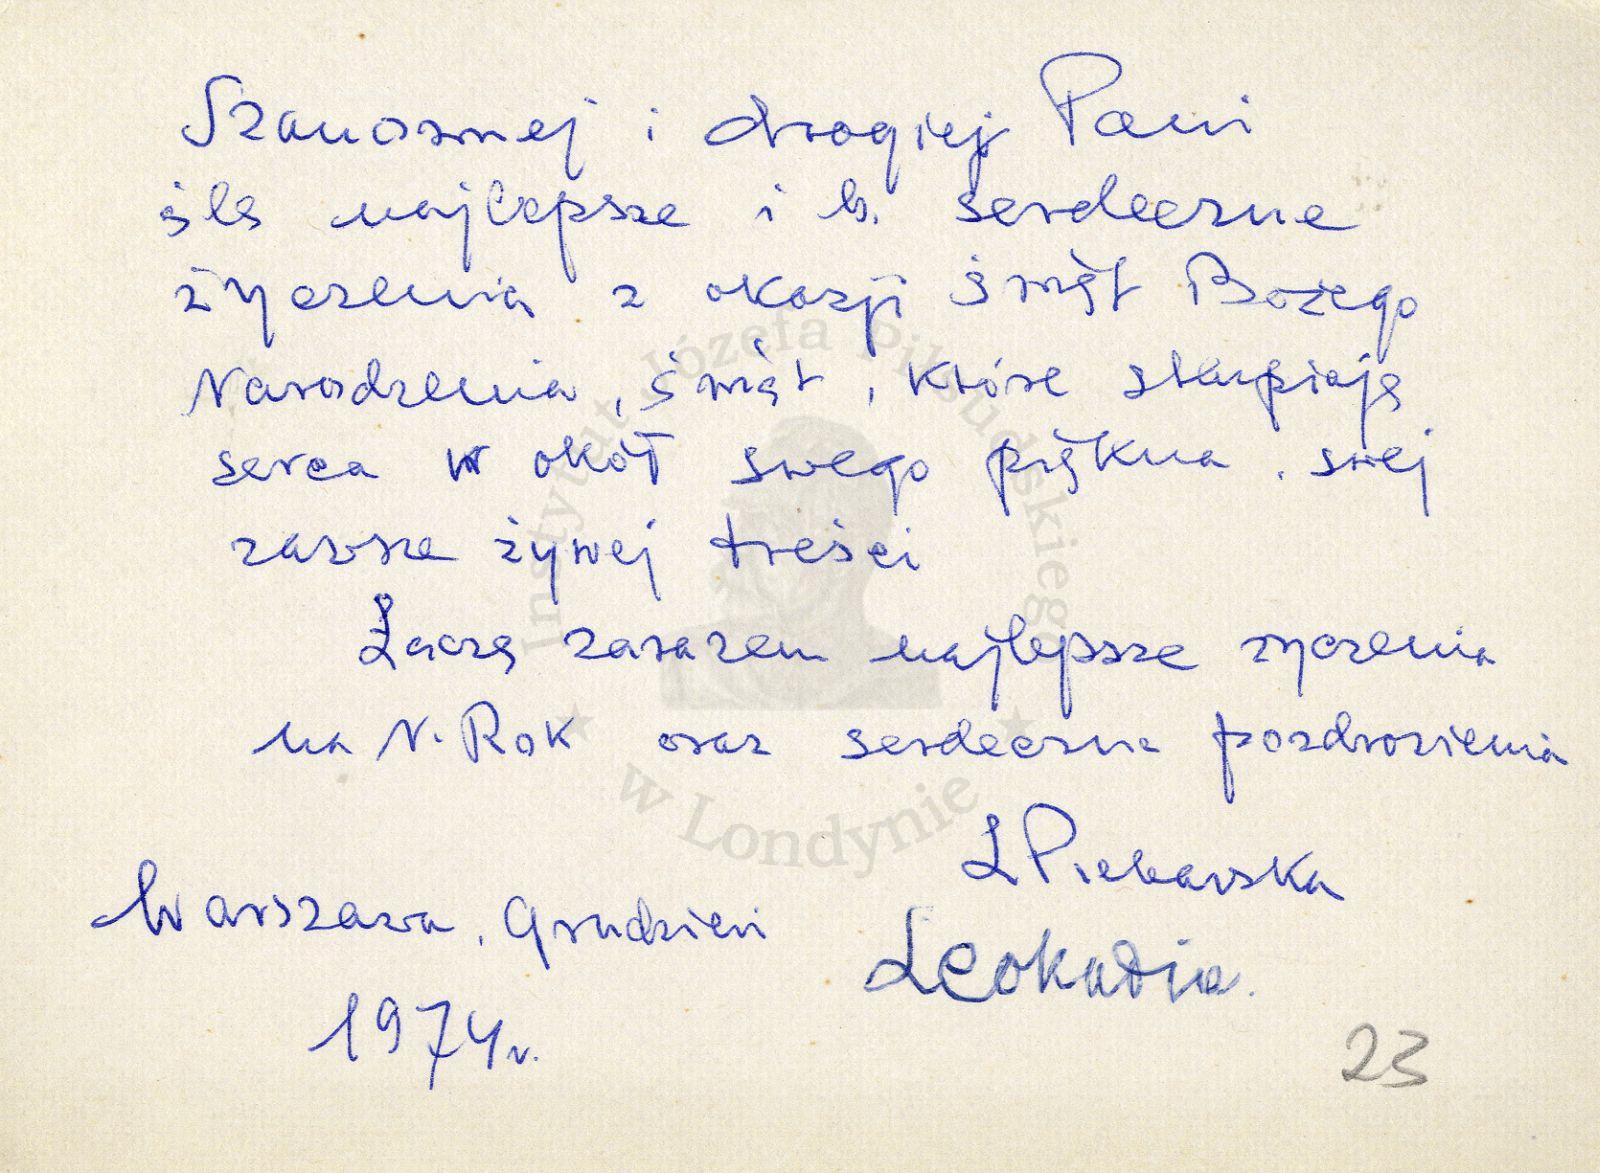 Szanownej i drogiej Pani
ślę najlepsze i b. serdeczne
życzenia z okazji świąt Bożego
Narodzenia, świąt, które skupiają
serca w okół swego piękna, swej
zawsze żywej treści
Łączę zarazem najlepsze życzenia
na N. Rok oraz serdeczne pozdrowienia
L Piekarska
Warszawa, Grudzień
Leokadia.
1974 r.
23
Instytut Józefa Piłsudskiego
w Londynie